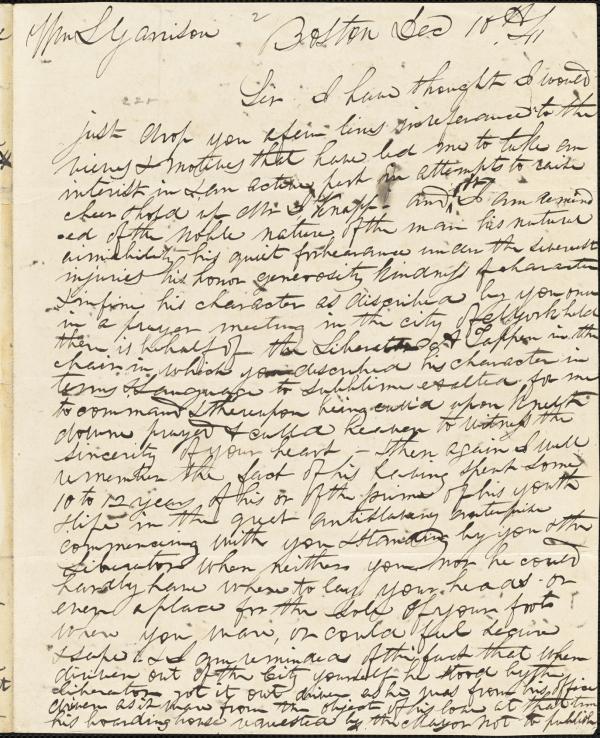 Wm L Garrison Boston Dec 10th /41
Sir I have thought I would
just drop you a few lines in referance to the
views & motives that have led me to take an
interest in & an active part in attempts to raise
cheer & hold up Mr I Knapp - and, I am remind
-ed of the noble nature of the man his natural
aimibility - his quiet forbearance under the severest
injuries his honor generosity kindness of character
& in fine his character as discribed by you once
in a prayer meeting in the city of N York held
there in behalf of the Liberator & A Tappen in the
chair in which you discribed his character in
terms & Language to sublime & exalted for me
to command & thereupon being call'd upon knelt
downe prayed & call'd heaven to witness the
sincerity of your heart - then again I well
remember the fact of his having spent some
10 to 12 years of his or of the prime of his youth
& life in the great antislavery enterprise
commencing with you & standing by you & the
Liberator when neither you nor he could
hardly have where to lay your heads - or
even a place for the sole of your foot
when you, ware, or could feel secure
& safe & I am reminded of the fact that when
driven out of the City yourself he stood by the
liberator got it out driven as he was from his office
driven as it ware from the object of his love at that time
his boarding house requested by the Mayor not to publish